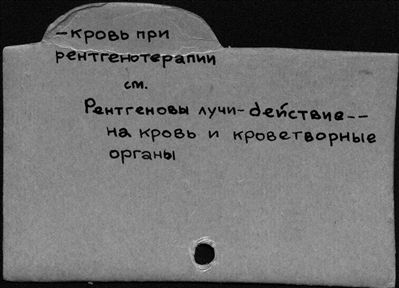 -кровь при
рентгенотерапии
см.
Рентгеновы лучи-действие--
на кровь и кроветворные
органы